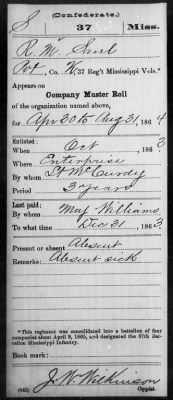 S
(Confederate.)
37 Miss.
R. M.
Pvt, Co. K, 37 Reg't Mississippi Vols.*
Appears on
Company Muster Roll
of the organization named above,
for Apr 30 to Aug 31, 1864
Enlisted:
When Oct, 1863
Where Enterprise
By whom Lt McCurdy
Period 3 years
Last paid:
By whom Maj Williams
To what time Dec 31, 1863
Present or absent Absent
Remarks: Absent sick
*This regiment was consolidated into a battalion of four
companies about April 9, 1865, and designated the 37th Bat-
talion Mississippi Infantry.
Book mark:
J. W. Wilkinson
(642) Copyist.